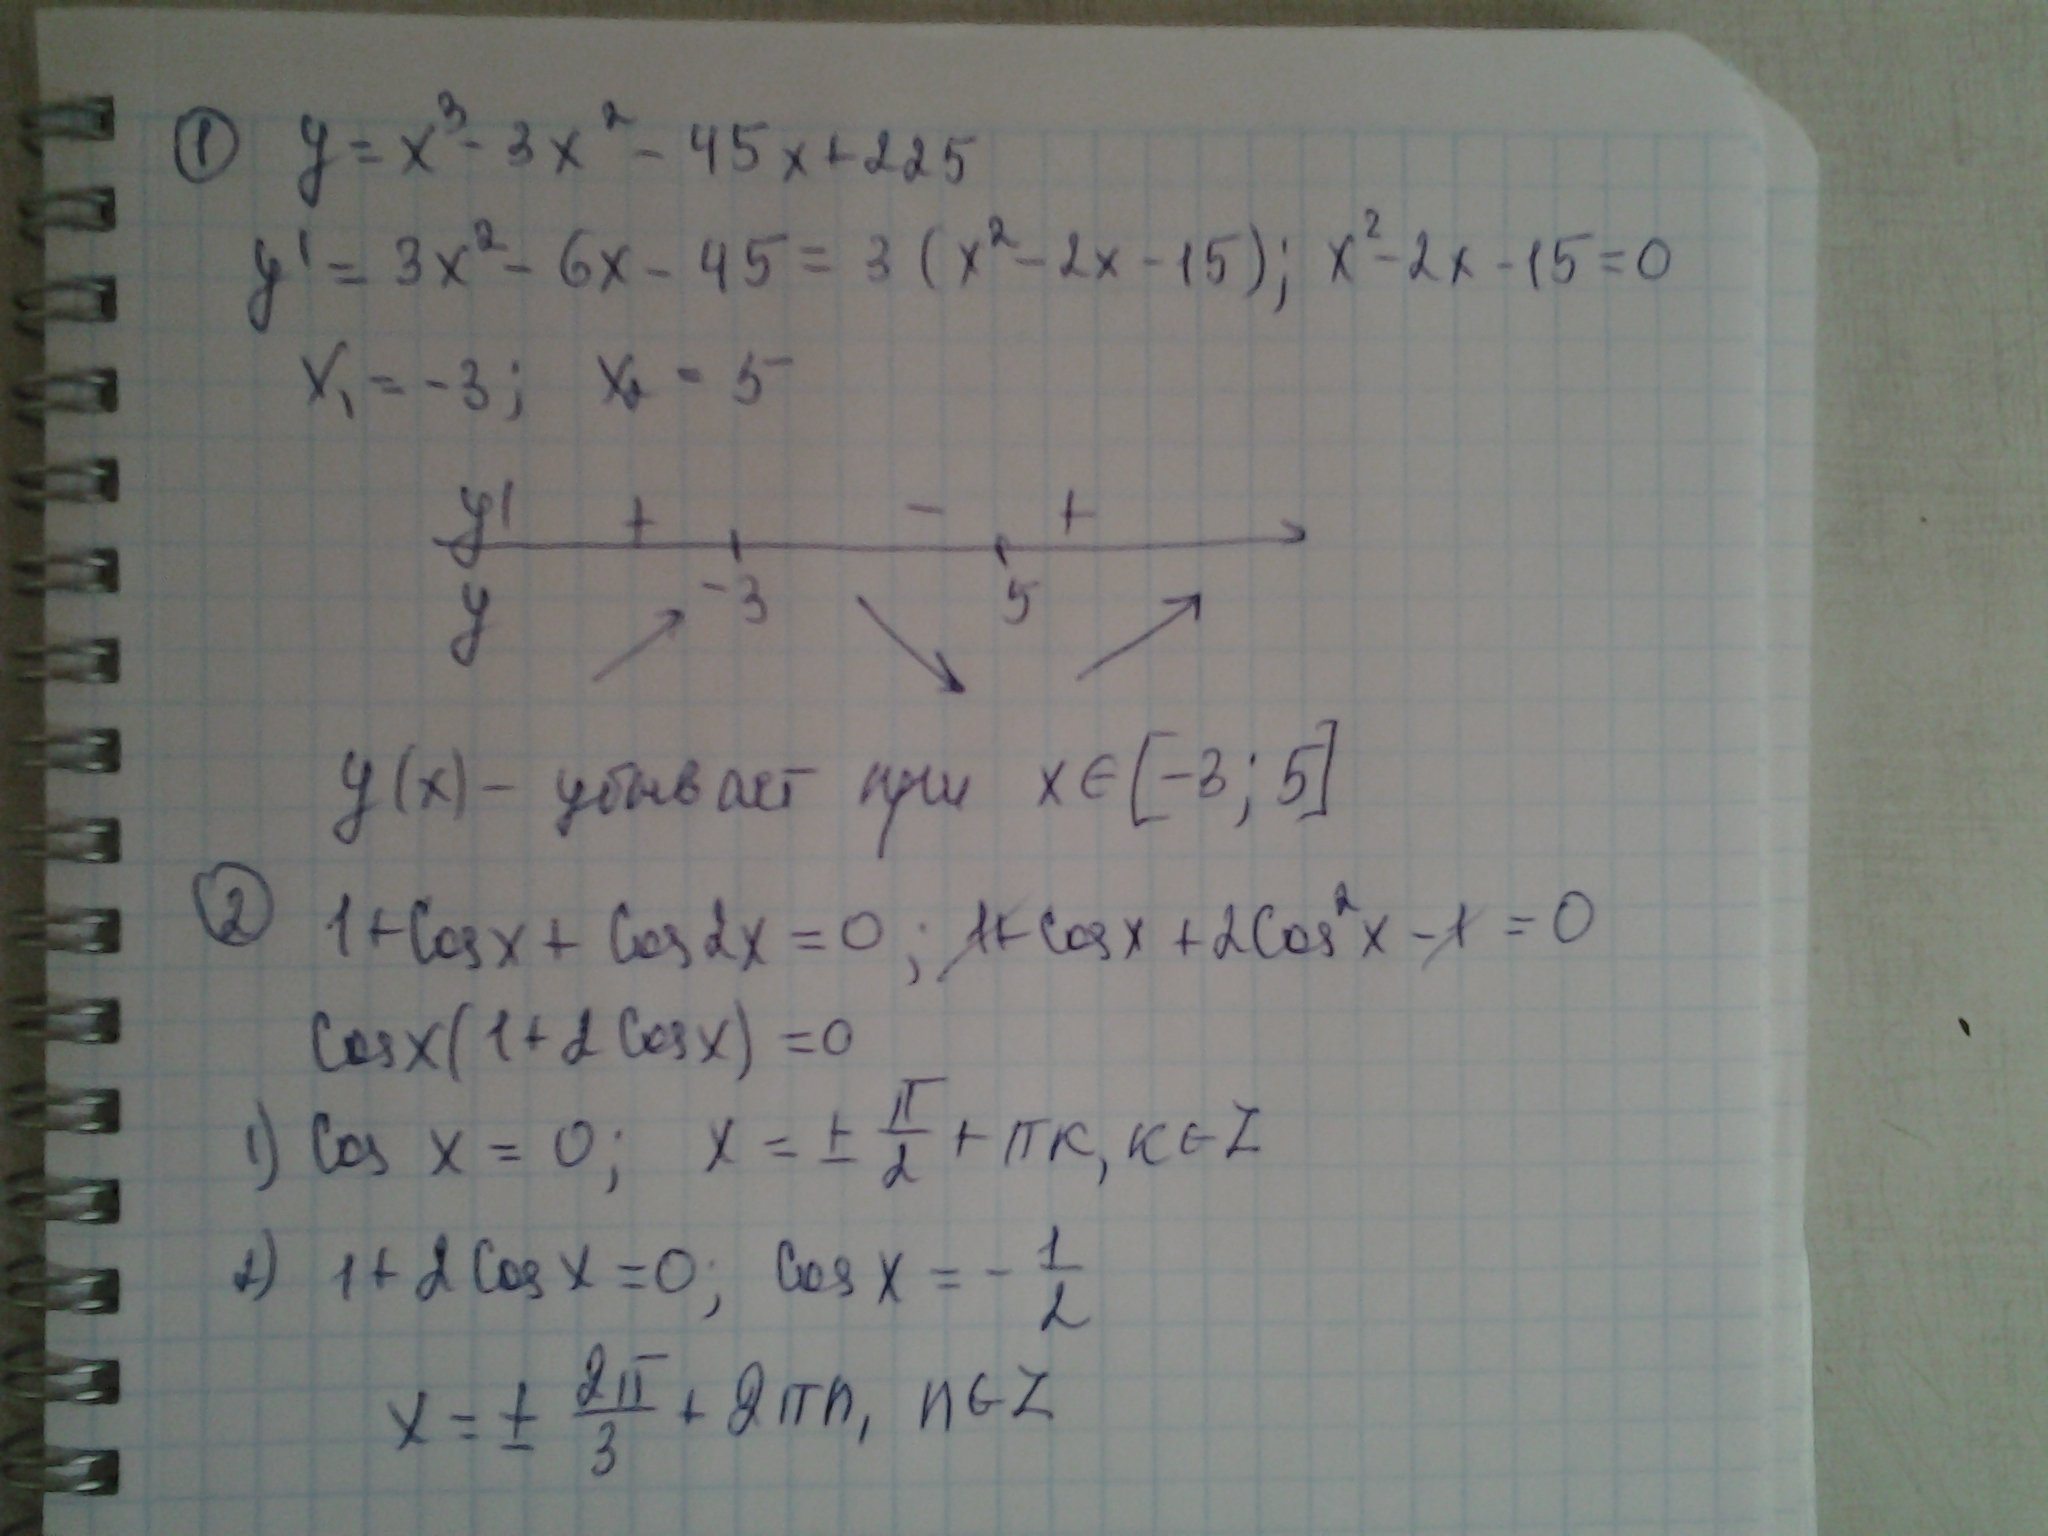 ① y = x³ - 3x² - 45x + 225
y' = 3x² - 6x - 45 = 3 (x² - 2x - 15); x² - 2x - 15 = 0
x₁ = -3; x₂ = 5
y' + - +
-3 5
y
y(x) - убывает при x ∈ [-3; 5]
② 1 + Cos x + Cos 2x = 0; 1 + Cos x + 2 Cos² x - 1 = 0
Cos x (1 + 2 Cos x) = 0
1) Cos x = 0; x = ± π/2 + πк, к ∈ Z
2) 1 + 2 Cos x = 0; Cos x = - 1/2
x = ± 2π/3 + 2πn, n ∈ Z